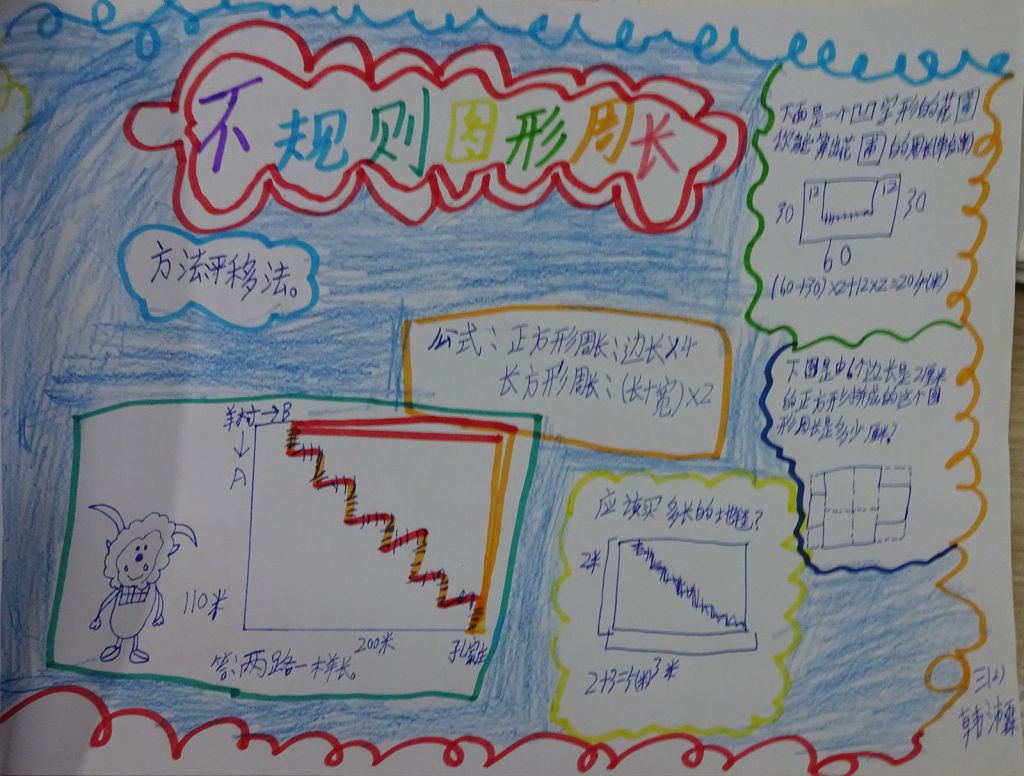 不规则图形周长
方法平移法。
公式：正方形周长：边长×4
长方形周长：(长+宽)×2
羊村→B
↓
A
110米
200米
答：两路一样长。
应该买多长的地毯？
2米
3米
2+3=5(米)
下面是一个凹字形的花圃
你能算出花圃的周长(单位:米)
12
12
30
30
60
(60+30)×2+12×2=204(米)
下图是由6个边长是2厘米
的正方形拼成的这个图
形周长是多少厘米？
三(2)